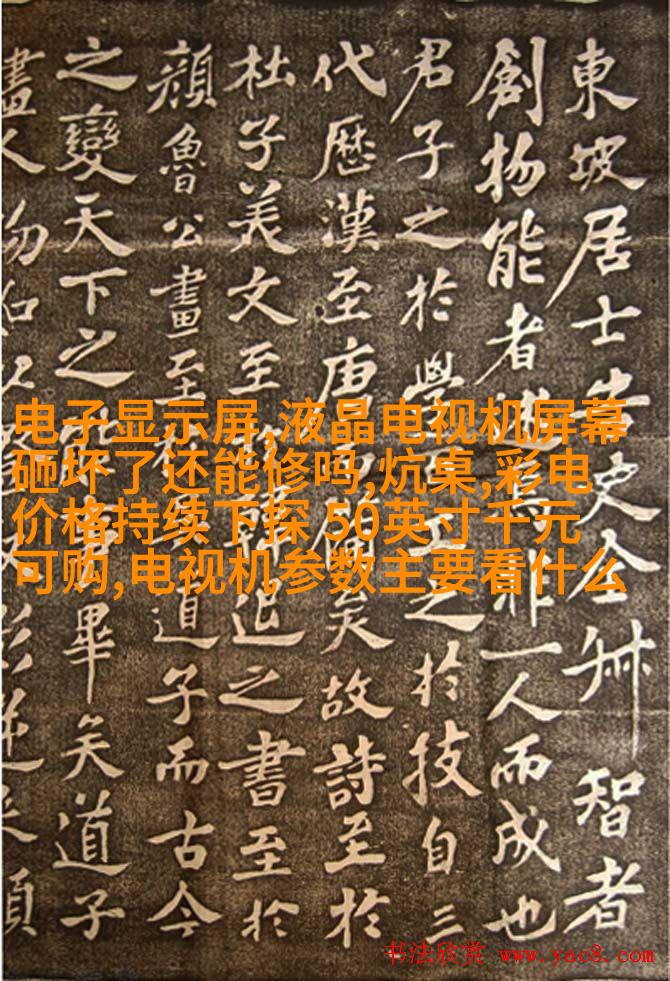 東坡居士書史全叔智者
創物能者述焉非一人而成也
君子之於學百工之於技自三
代歷漢至唐而備矣故詩至於
杜子美文至於韓退之書至於
顏魯公畫至於吳道子而古今
之變天下之能事畢矣道子
畫人物
电子显示屏,液晶电视机屏幕
砸坏了还能修吗,炕桌,彩电
价格持续下探 50英寸千元
可购,电视机参数主要看什么
书法欣赏 www.yac8.com